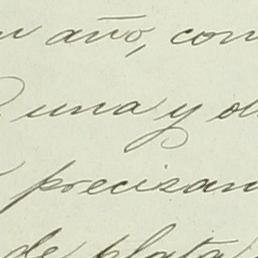 año, con
una y
precisan
de plata